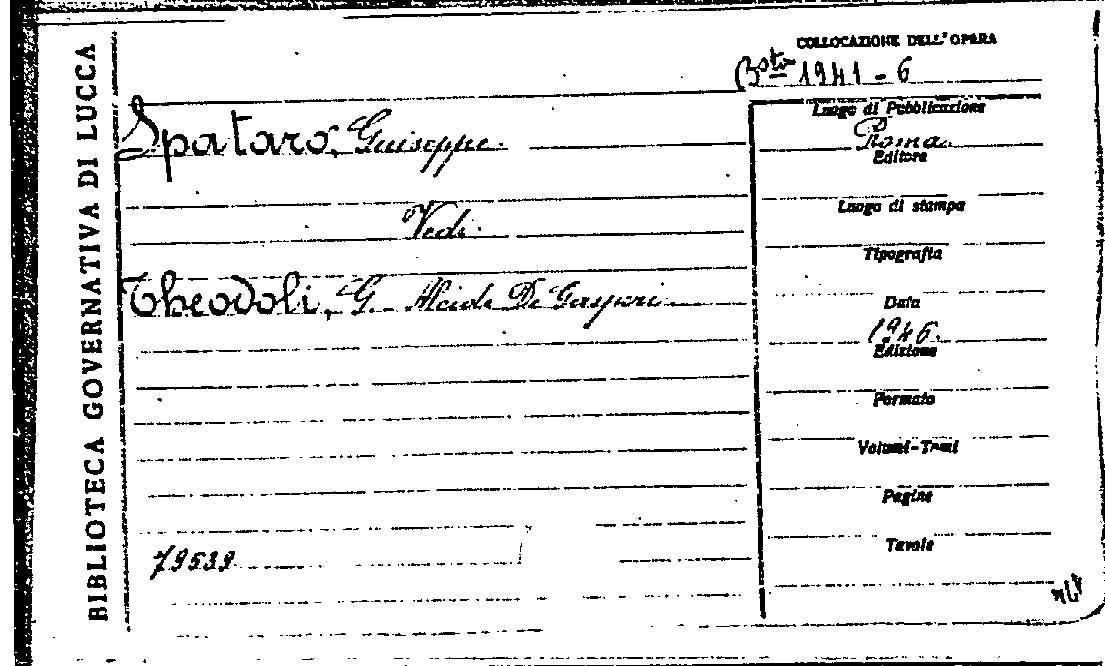 BIBLIOTECA GOVERNATIVA DI LUCCA
COLLOCAZIONE DELL'OPERA
Bsta 1941-6
Spataro, Giuseppe.
Vedi.
Theodoli, G. Alcide De Gasperi
79539
Luogo di Pubblicazione
Roma.
Editore
Luogo di stampa
Tipografia
Data
1946.
Edizione
Formato
Volumi-Tomi
Pagine
Tavole